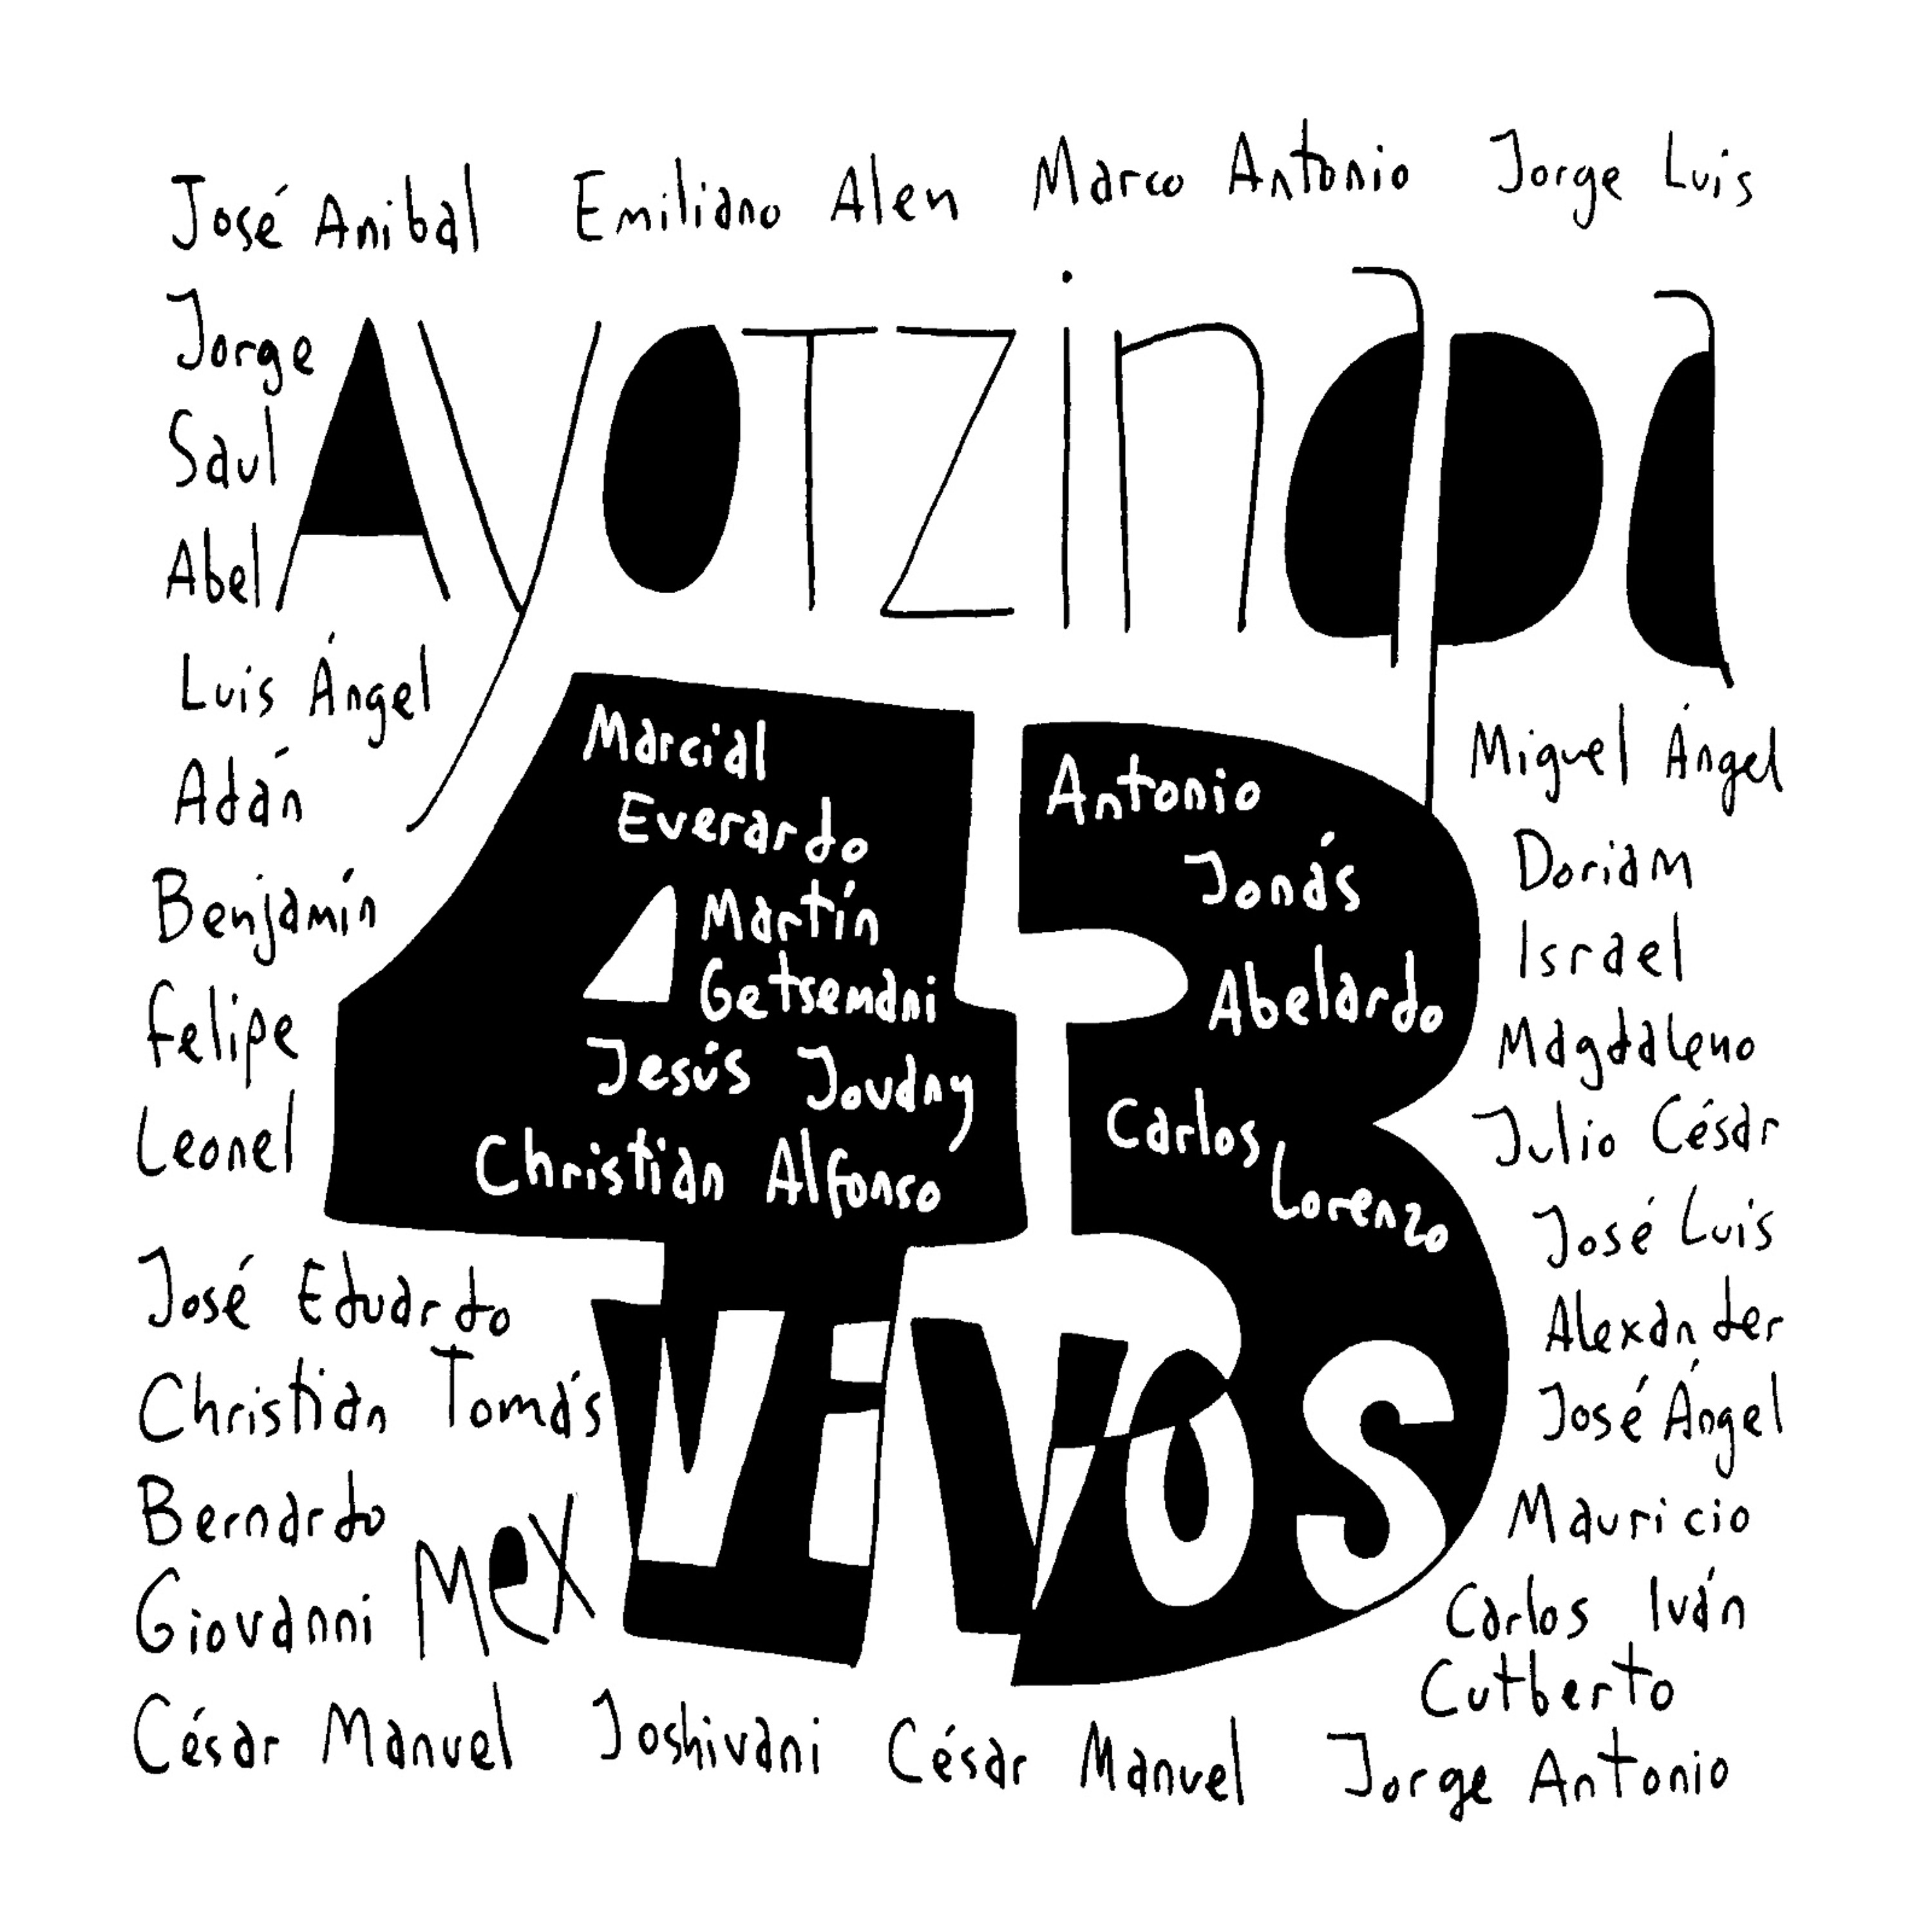 José Anibal Emiliano Alen Marco Antonio Jorge Luis
Jorge
Saul
Abel
Luis Ángel
Adán
Benjamín
Felipe
Leonel
José Eduardo
Christian Tomás
Bernardo
Giovanni
Ayotzinapa
43
Marcial
Everardo
Martín
Getsemani
Jesús Jovany
Christian Alfonso
Antonio
Jonás
Abelardo
Carlos
Lorenzo
Mex
VIVOS
Miguel Ángel
Doriam
Israel
Magdaleno
Julio César
José Luis
Alexander
José Ángel
Mauricio
Carlos Iván
Cutberto
César Manuel Joshivani César Manuel Jorge Antonio